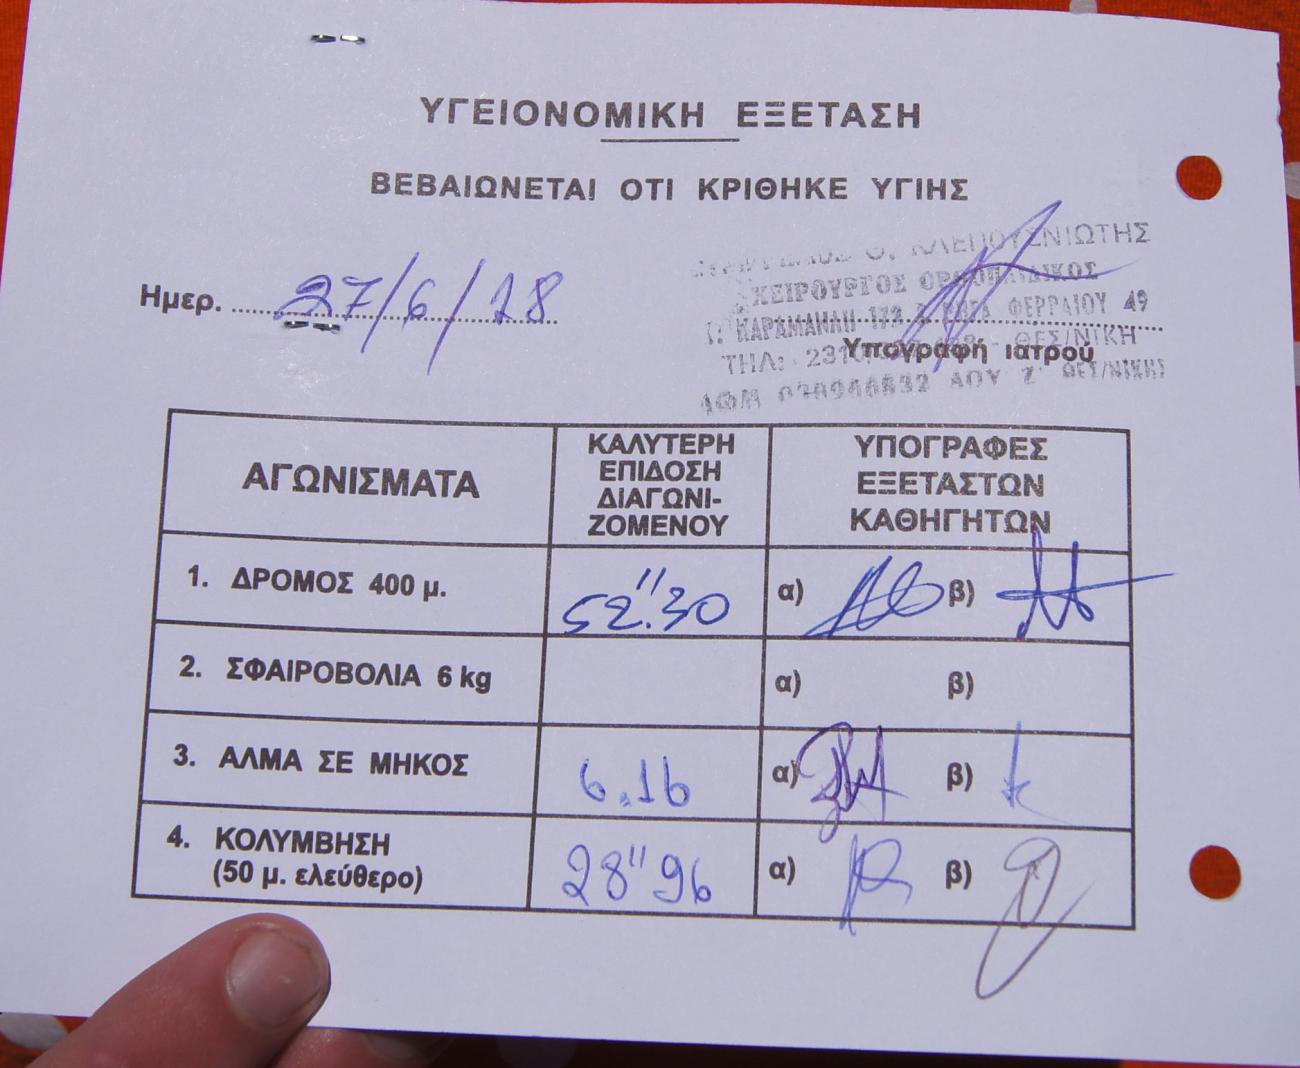 ΥΓΕΙΟΝΟΜΙΚΗ ΕΞΕΤΑΣΗ
ΒΕΒΑΙΩΝΕΤΑΙ ΟΤΙ ΚΡΙΘΗΚΕ ΥΓΙΗΣ
Ημερ. 27/6/18
ΧΕΙΡΟΥΡΓΟΣ ΟΡΘΟΠΑΙΔΙΚΟΣ
ΚΑΡΑΜΑΝΛΗ 172 ΦΕΡΡΑΙΟΥ 49
ΤΗΛ: ΘΕΣ/ΝΙΚΗ
Υπογραφή ιατρού
ΑΦΜ ΔΟΥ Ζ' ΘΕΣ/ΝΙΚΗΣ
ΑΓΩΝΙΣΜΑΤΑ
ΚΑΛΥΤΕΡΗ
ΕΠΙΔΟΣΗ
ΔΙΑΓΩΝΙ-
ΖΟΜΕΝΟΥ
ΥΠΟΓΡΑΦΕΣ
ΕΞΕΤΑΣΤΩΝ
ΚΑΘΗΓΗΤΩΝ
1. ΔΡΟΜΟΣ 400 μ. 52".30 α) β)
2. ΣΦΑΙΡΟΒΟΛΙΑ 6 kg α) β)
3. ΑΛΜΑ ΣΕ ΜΗΚΟΣ 6.16 α) β)
4. ΚΟΛΥΜΒΗΣΗ
(50 μ. ελεύθερο) 28"96 α) β)